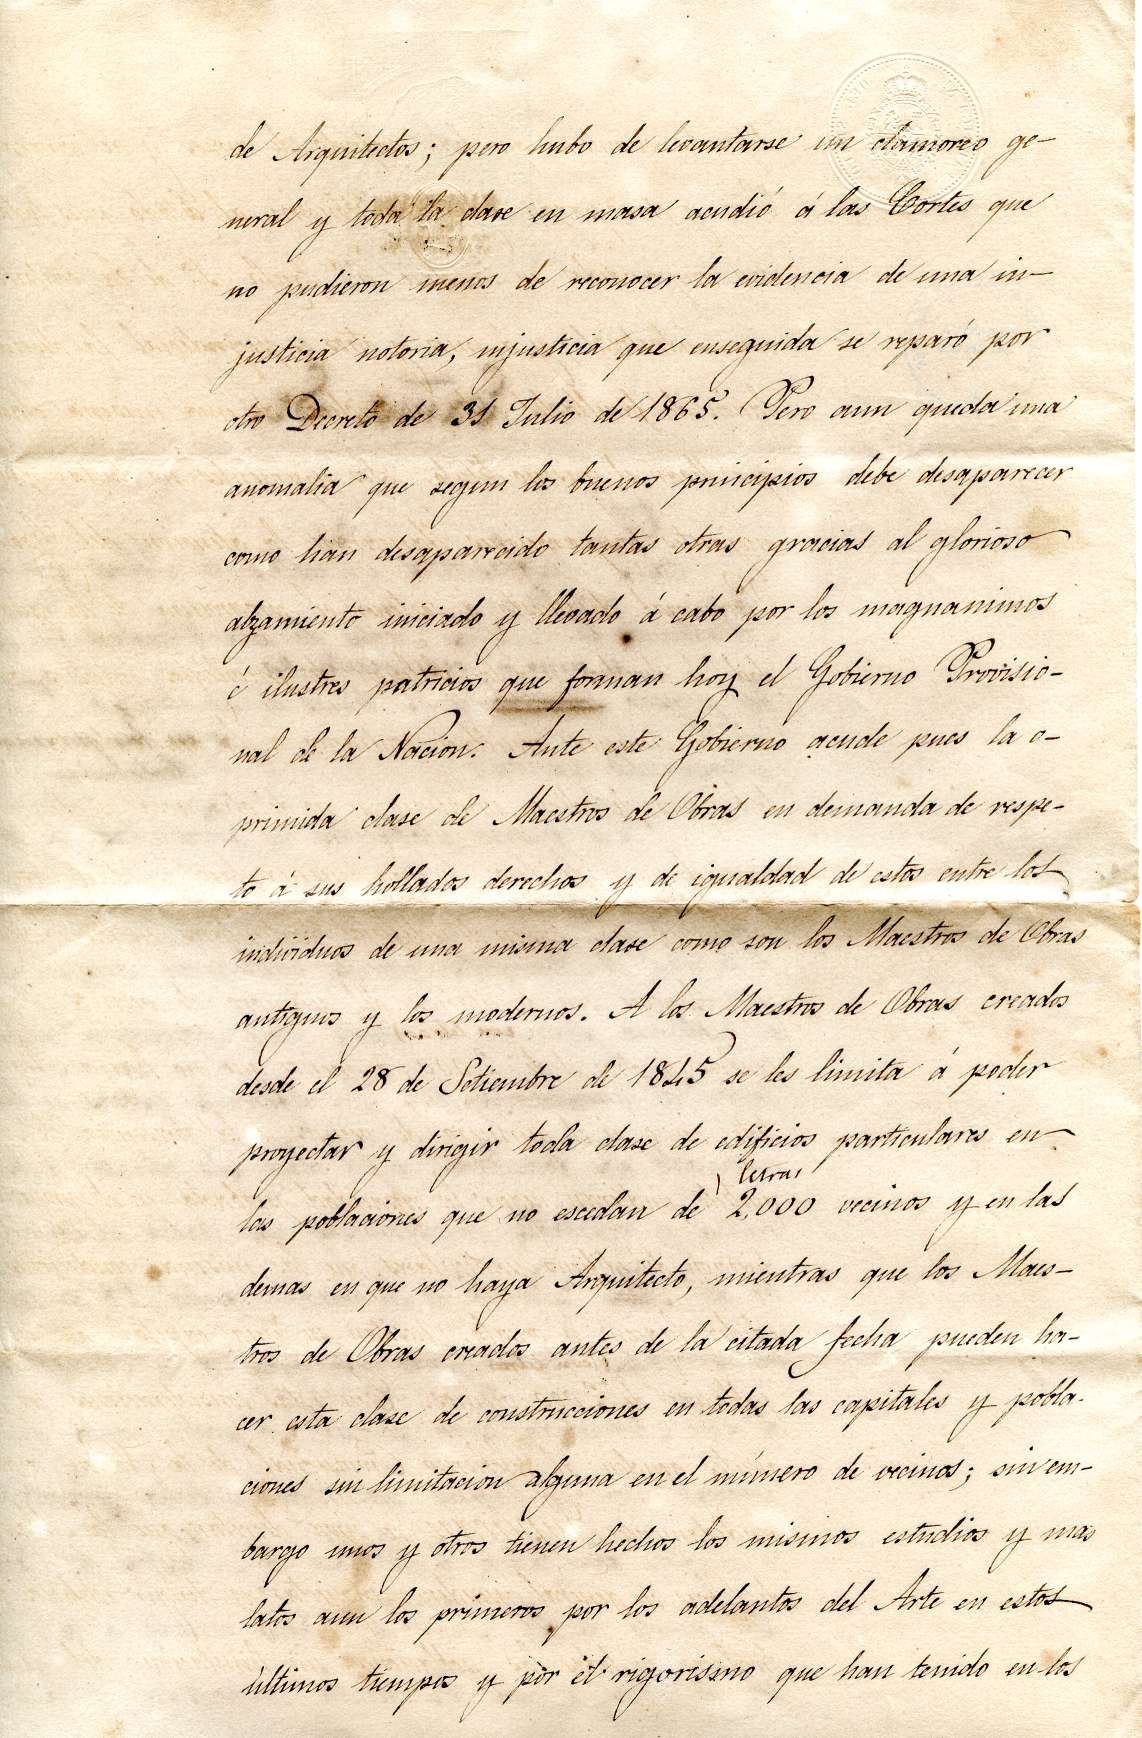 de Arquitectos; pero hubo de levantarse un clamoreo ge-
neral y toda la clase en masa acudió á las Cortes que
no pudieron menos de reconocer la evidencia de una in-
justicia notoria, injusticia que enseguida se reparó por
otro Decreto de 31 Julio de 1865. Pero aun queda una
anomalia que segun los buenos principios debe desaparecer
como han desaparecido tantas otras gracias al glorioso
alzamiento iniciado y llevado á cabo por los magnanimos
é ilustres patricios que forman hoy el Gobierno Provisio-
nal de la Nacion. Ante este Gobierno acude pues la o-
primida clase de Maestros de Obras en demanda de respe-
to á sus hollados derechos y de igualdad de estos entre los
individuos de una misma clase como son los Maestros de Obras
antiguos y los modernos. A los Maestros de Obras creados
desde el 28 de Setiembre de 1845 se les limita á poder
proyectar y dirigir toda clase de edificios particulares en
letras
las poblaciones que no escedan de 2,000 vecinos y en las
demas en que no haya Arquitecto, mientras que los Maes-
tros de Obras creados antes de la citada fecha pueden ha-
cer esta clase de construcciones en todas las capitales y pobla-
ciones sin limitacion alguna en el número de vecinos; sin em-
bargo unos y otros tienen hechos los mismos estudios y mas
latos aun los primeros por los adelantos del Arte en estos
últimos tiempos y por el rigorismo que han tenido en los